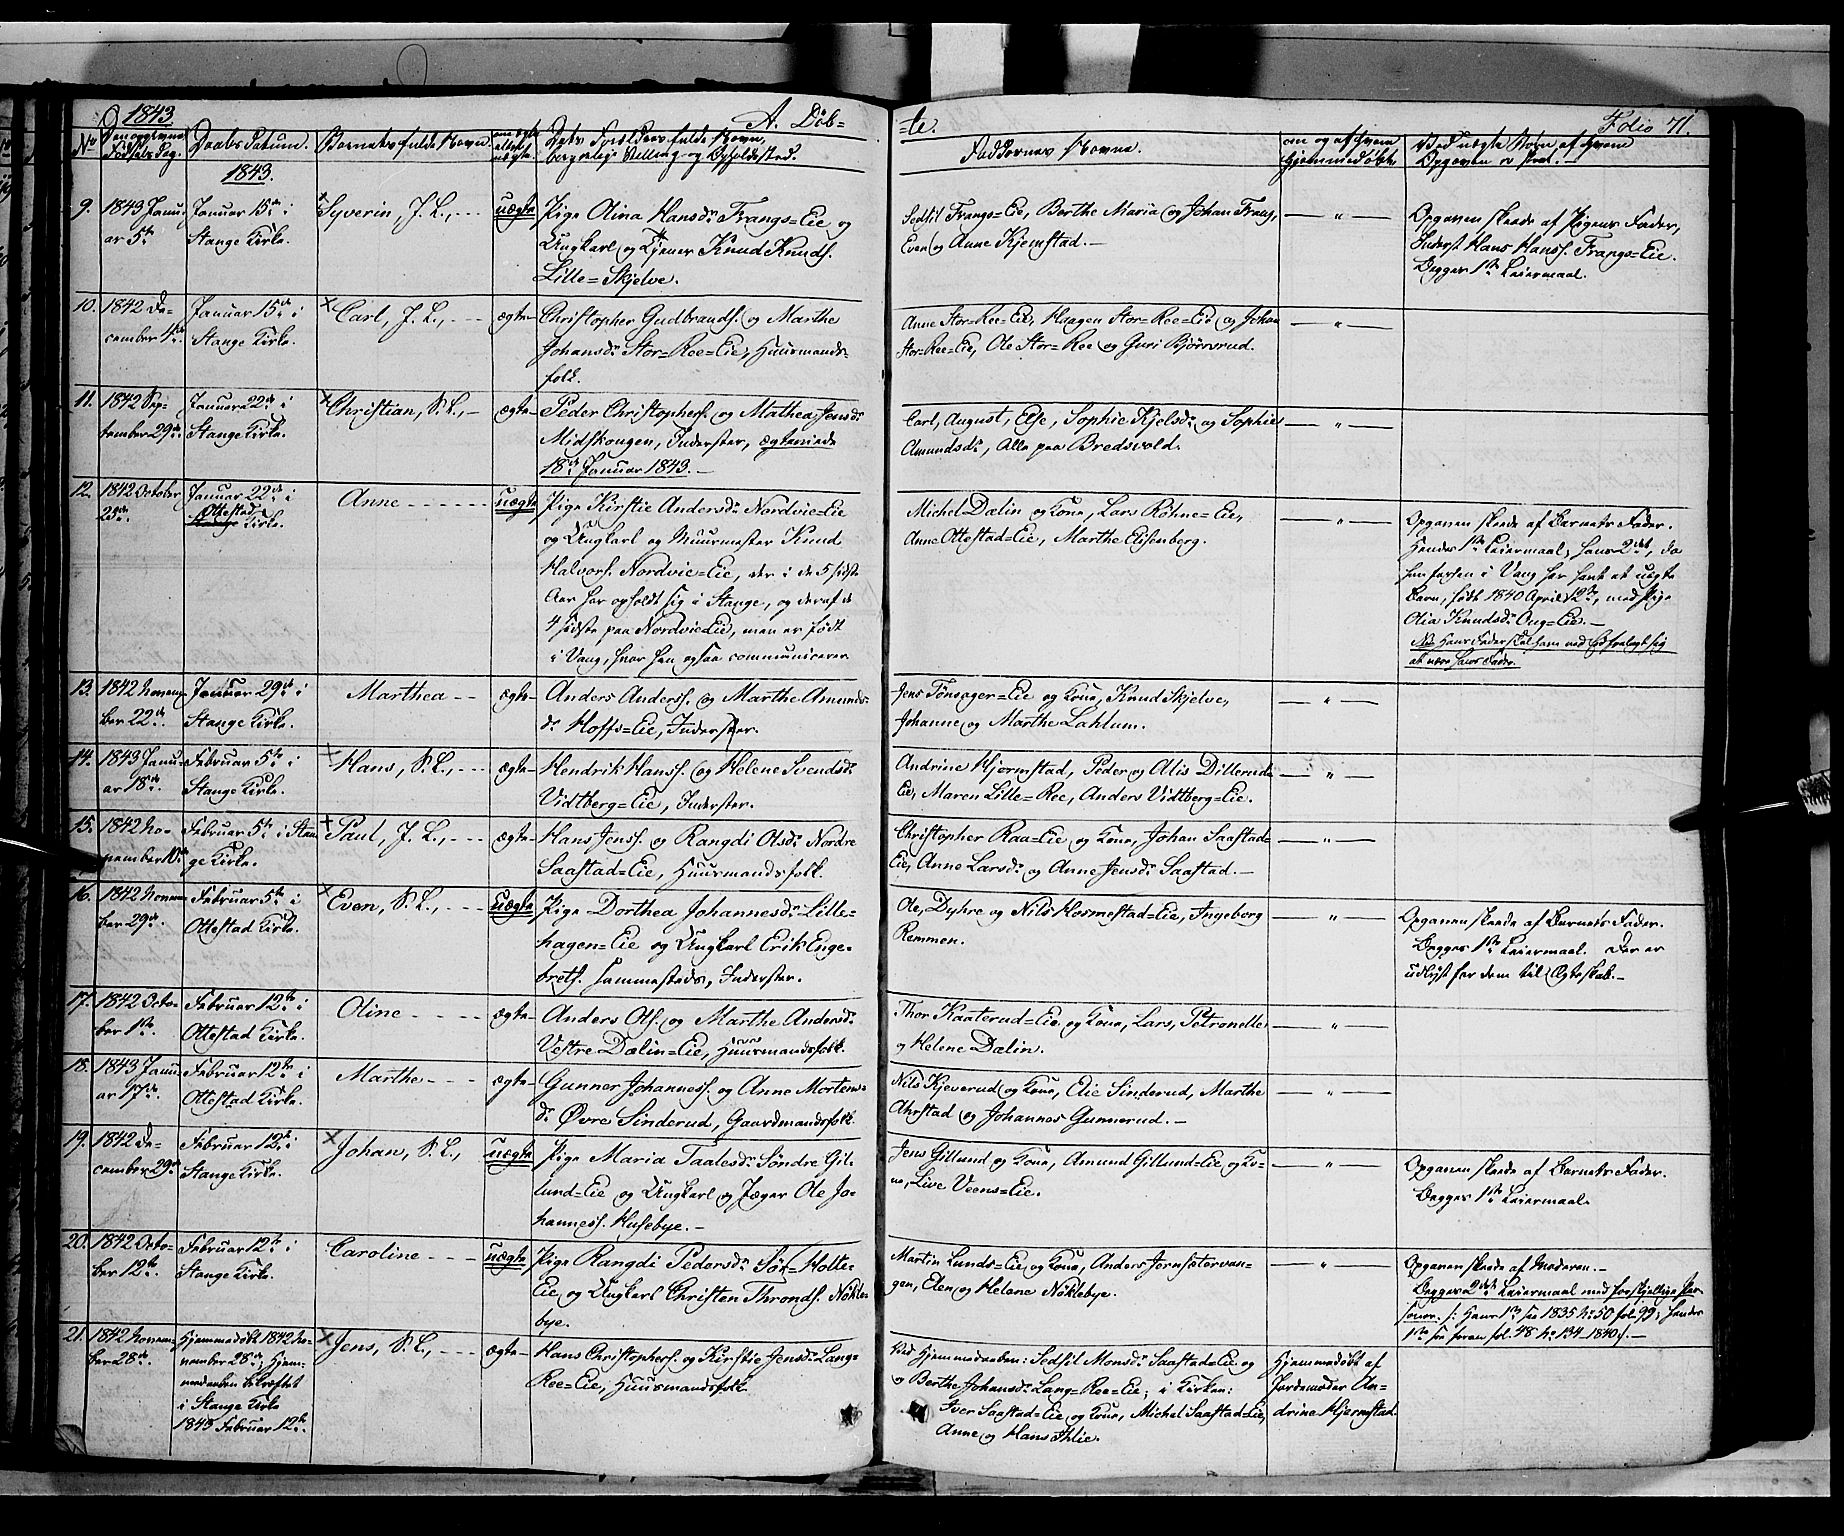 1843
A. Døb=
=te.
Folio 71.
No
Den opgivne
Fødsels Dag.
Daabs Datum.
Barnets fulde Navn.
om ægte
eller
uægte
Dets Forældres fulde Navn,
borgerlige Stilling og Opholdssted.
Faddernes Navne.
om og af hvem
hjemmedøbt.
Ved uægte Børn, af hvem
Opgaven er skeet.
1843.
9.
1843 Janu-
ar 5te
Januar 15de i
Stange Kirke.
Syverin, J. L.,
uægte
Pige Olina Hansdr Frangs=Eie og
Ungkarl og Tjener Knud Knuds.
Lille=Skjelve.
Sedsil Frangs=Eie, Berthe Maria og Johan Frang,
Even og Anne Kjemstad.—
— " —
Opgaven skeede af Pigens Fader,
Inderst Hans Hanss. Frangs=Eie.
Begges 1ste Leiermaal.
10.
1842 De-
cember 4de
Januar 15de i
Stange Kirke.
Carl, J. L.,
ægte
Christopher Gudbrands. og Marthe
Johansdr Stor=Ree=Eie, Huusmands-
folk.
Anne Stor=Ree=Eie, Haagen Stor=Ree=Eie og Johan
Stor=Ree=Eie, Ole Stor=Ree og Guri Bjørsrud.
— " —
11.
1842 Sep-
tember 29de
Januar 22de i
Stange Kirke.
Christian, S. L.,
ægte
Peder Christophers. og Mathea Jensdr
Midskougen, Inderster, ægteviede
18de Januar 1843.—
Carl, August, Else, Sophie Kjelsdr og Sophie
Amundsdr, Alle paa Bredsvold.
— " —
12.
1842 October
23de
Januar 22de i
Ottestad
Stange Kirke.
Anne
uægte
Pige Kirstie Andersdr Nordvie=Eie
og Ungkarl og Muurmester Knud
Halvors. Nordvie=Eie, der i de 5 sidste
Aar har opholdt sig i Stange, og deraf de
4 sidste paa Nordvie=Eie, men er født
i Vang, hvor han ogsaa communicerer
Michel Dælin og Kone, Lars Røhne=Eie,
Anne Ottestad=Eie, Marthe Elisenberg.
— " —
Opgaven skeede af Barnets Fader.
Hendes 1ste Leiermaal, hans 2det, da
han forhen i Vang har havt et uægte
Barn, født 1840 April 12te, med Pige
Olia Knudsdr Oug=Eie.—
NB Hans Fader skal have ved Ed fralagt sig
at være hans Fader.
13.
1842 Novem-
ber 22de
Januar 29de i
Stange Kirke.
Marthea
ægte
Anders Anderss. og Marthe Amunds-
dr Hoffs=Eie, Inderster.
Jens Tønsager=Eie og Kone, Knud Skjelve,
Johanne og Marthe Lahlum.
— " —
14.
1843 Janu-
ar 18de
Februar 5te i
Stange Kirke.
Hans, S. L.,
ægte
Hendrik Hanss. og Helene Svendsdr
Vidtberg=Eie, Inderster.
Andrine Hjermstad, Peder og Alis Dillerud-
Eie, Maren Lille=Ree, Anders Vidtberg=Eie.
— " —
15.
1842 No-
vember 10de
Februar 5te i Stan-
ge Kirke.
Paul, J. L.,
ægte
Hans Jenss. og Rangdi Olsdr Nordre
Saastad=Eie, Huusmandsfolk.
Christopher Raa=Eie og Kone, Johan Saastad=
Eie, Anne Larsdr og Anne Jensdr Saastad.—
— " —
16.
1842 Novem-
ber 29de
Februar 5te i
Ottestad Kirke.
Even, S. L.,
uægte
Pige Dorthea Johannesdr Lille-
hagen=Eie og Ungkarl Erik Enge-
brets. sammesteds, Inderster.
Ole, Dyhre og Nils Hosmestad=Eie, Ingeborg
Remmen.
— " —
Opgaven skeede af Barnets Fader.
Begges 1ste Leiermaal. Der er
udlyst for dem til Ægteskab.—
17.
1842 Octo-
ber 1ste
Februar 12te i
Ottestad Kirke.
Oline
ægte
Anders Ols. og Marthe Andersdr
Vestre Dælin=Eie, Huusmandsfolk.
Thor Kaaterud=Eie og Kone, Lars, Petronelle
og Helene Dælin.
— " —
18.
1843 Janu-
ar 17de
Februar 12te i
Ottestad Kirke.
Marthe
ægte
Gunner Johanness. og Anne Mortens-
dr Øvre Sinderud, Gaardmandsfolk.
Nils Kjeverud og Kone, Elie Sinderud, Marthe
Ahrstad og Johannes Gunnerud.—
— " —
19.
1842 De-
cember 29de
Februar 12te i
Stange Kirke.
Johan, S. L.,
uægte
Pige Maria Taalesdr Søndre Gil-
lund=Eie og Ungkarl og Jæger Ole Jo-
hanness. Husebye.—
Jens Gillund og Kone, Amund Gillund=Eie og Ko-
ne, Live Veens=Eie.
— " —
Opgaven skeede af Barnets Fader.
Begges 1ste Leiermaal.
20.
1842 Octo-
ber 12te
Februar 12te i
Stange Kirke.
Caroline
uægte
Pige Rangdi Pedersdr Sør=Holte-
Eie og Ungkarl Christen Thronds. Nøkle-
bye.
Martin Lunds=Eie og Kone, Anders Jernsetervan-
gen, Elen og Helene Nøklebye.
— " —
Opgaven skeede af Moderen.—
Begges 2det Leiermaal med forskjellige Per-
soner. s: Hans 1ste see 1835 No 50 fol. 99; hendes
1ste see foran fol. 48 No 134 1840.—
21.
1842 Novem-
ber 28de
Hjemmedøbt 1842 No-
vember 28de; Hjem-
medaaben bekræftet
i Stange Kirke
1843 Februar 12te.
Jens, S. L.,
ægte
Hans Christophers. og Kirstie Jensdr Lang-
Ree=Eie, Huusmandsfolk.
Ved Hjemmedaaben: Sedsil Monsdr Saastad=Eie og
og Berthe Johansdr Lang=Ree=Eie; i Kirken:
Iver Saastad=Eie og Kone, Michel Saastad=Eie,
Anne og Hans Thlie.
Hjemmedøbt af
Jordemoder An-
drine Hjermstad.